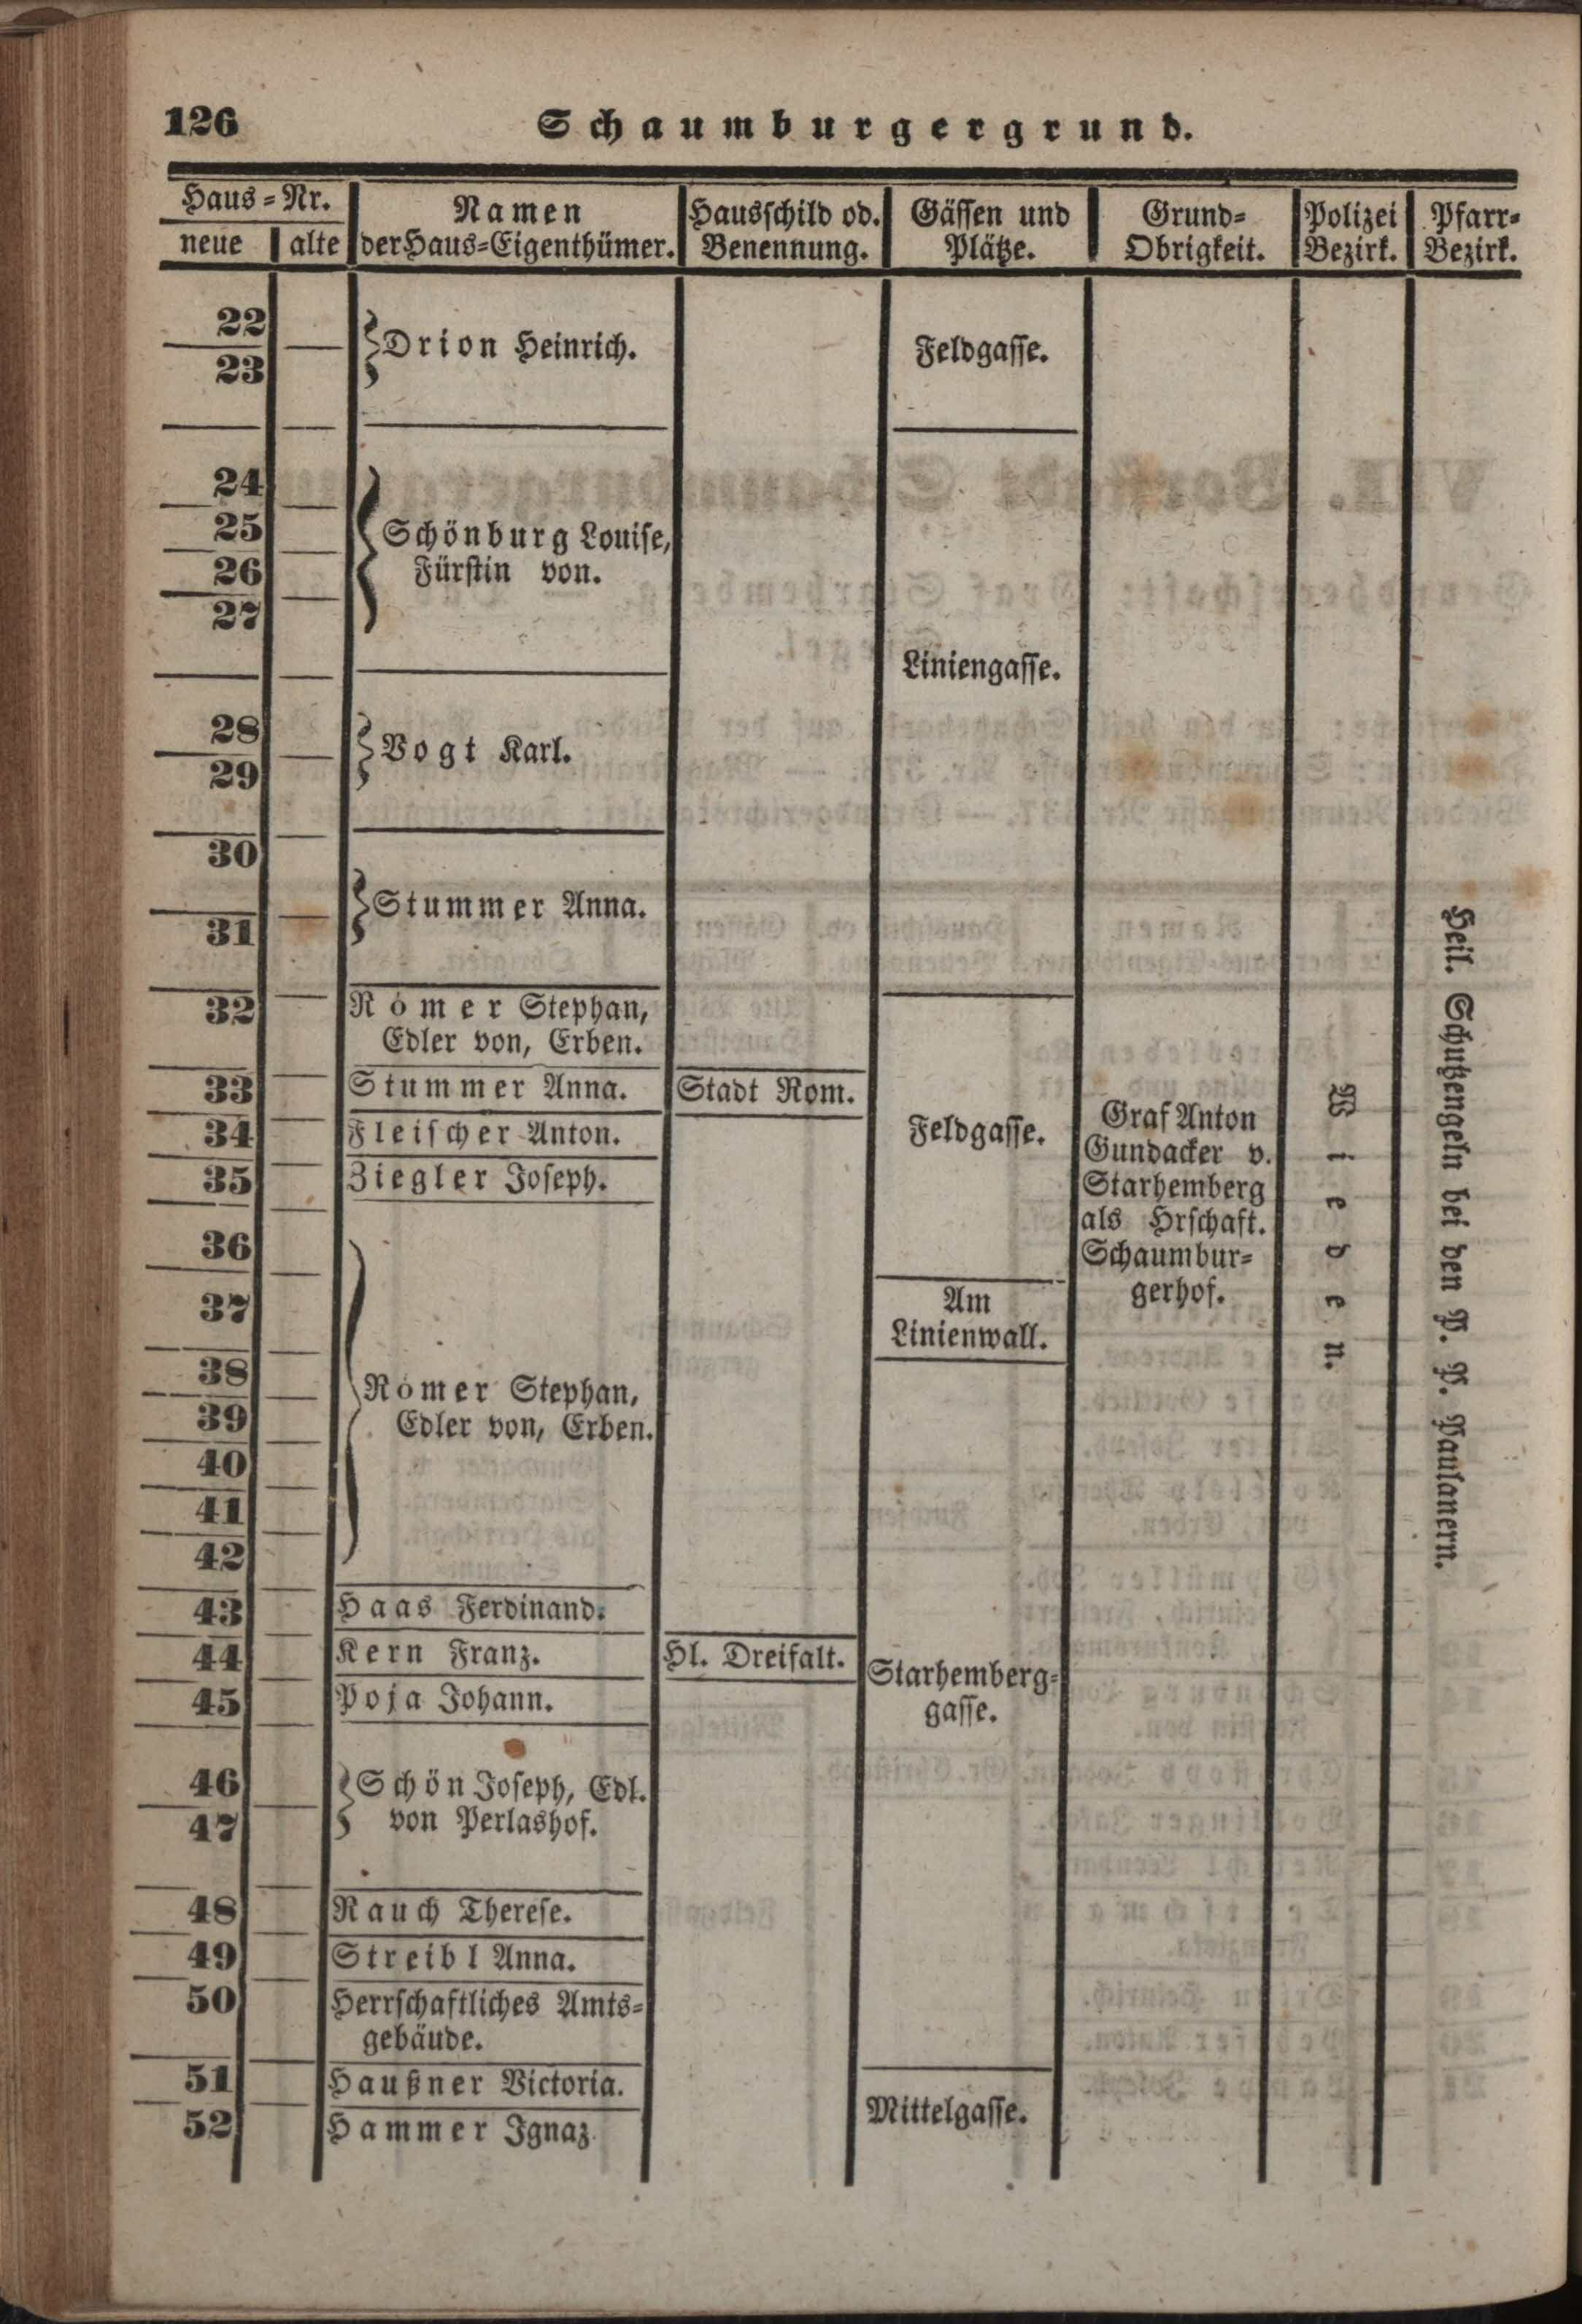 126
Schaumburgergrund.
Haus-Nr.
neue
alte
Namen
der Haus-Eigenthümer.
Hausschild od.
Benennung.
Gässen und
Plätze.
Grund-
Obrigkeit.
Polizei
Bezirk.
Pfarr-
Bezirk.
22
23
Drion Heinrich.
Feldgasse.
24
25
26
27
Schönburg Louise,
Fürstin von.
Liniengasse.
28
29
Vogt Karl.
30
31
Stummer Anna.
32
Römer Stephan,
Edler von, Erben.
33
Stummer Anna.
Stadt Rom.
34
Fleischer Anton.
Feldgasse.
35
Ziegler Joseph.
Graf Anton
Gundacker v.
Starhemberg
als Hrschaft.
Schaumbur-
gerhof.
Wieden.
Heil. Schutzengeln bei den P. P. Paulanern.
36
37
38
39
40
41
42
Am
Linienwall.
Römer Stephan,
Edler von, Erben.
43
Haas Ferdinand.
44
Kern Franz.
Hl. Dreifalt.
45
Poja Johann.
Starhemberg-
gasse.
46
47
Schön Joseph, Edl.
von Perlashof.
48
Rauch Therese.
49
Streibl Anna.
50
Herrschaftliches Amts-
gebäude.
51
Haußner Victoria.
52
Hammer Ignaz
Mittelgasse.